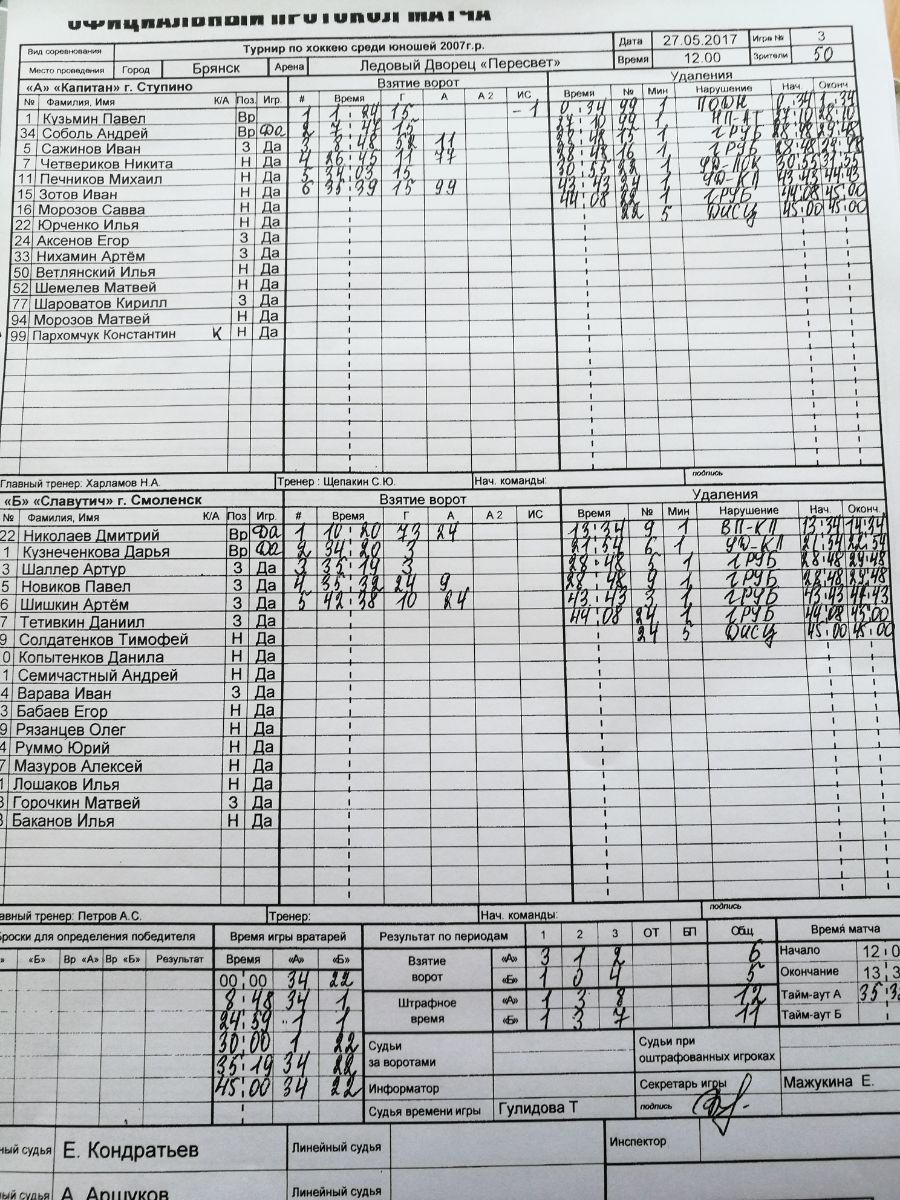 ОФИЦИАЛЬНЫЙ ПРОТОКОЛ МАТЧА
Вид соревнования Турнир по хоккею среди юношей 2007г.р. Дата 27.05.2017 Игра № 3
Место проведения Город Брянск Арена Ледовый Дворец «Пересвет» Время 12.00 Зрители 50
«А» «Капитан» г. Ступино Взятие ворот Удаления
№ Фамилия, Имя К/А Поз. Игр. # Время Г А А 2 ИС Время № Мин Нарушение Нач. Оконч.
1 Кузьмин Павел Вр 1 1 24 15 -1 0 34 99 1 0 34 1 34
34 Соболь Андрей Вр Да 2 7 47 15 99 1
5 Сажинов Иван З Да 3 8 48 52 11 28 48 15 1 ГРУБ 28 48 29 48
7 Четвериков Никита Н Да 4 26 45 11 77 28 48 16 1 ГРУБ 28 48 29 48
11 Печников Михаил Н Да 5 34 03 15 30 55 22 1 30 55 31 55
15 Зотов Иван Н Да 6 35 39 15 99 43 43 24 1 УД-КП 43 43
16 Морозов Савва Н Да 44 08 22 1 ГРУБ 44 08 45 00
22 Юрченко Илья Н Да 22 5 ДИСЦ 45 00 45 00
24 Аксенов Егор З Да
33 Нихамин Артём З Да
50 Ветлянский Илья Н Да
52 Шемелев Матвей Н Да
77 Шароватов Кирилл З Да
94 Морозов Матвей Н Да
99 Пархомчук Константин К Н Да
Главный тренер: Харламов Н.А. Тренер : Щепакин С.Ю. Нач. команды: подпись
«Б» «Славутич» г. Смоленск Взятие ворот Удаления
№ Фамилия, Имя К/А Поз Игр. # Время Г А А 2 ИС Время № Мин Нарушение Нач. Оконч.
22 Николаев Дмитрий Вр Да 1 10 20 73 24 13 34 9 1 ВП-КП 13 34 14 34
1 Кузнеченкова Дарья Вр Да 2 34 20 3 21 54 6 1 УД-КП 21 54 22 54
3 Шаллер Артур З Да 3 35 19 3 28 48 5 1 ГРУБ 28 48 29 48
5 Новиков Павел З Да 4 35 32 24 9 28 48 9 1 ГРУБ 28 48 29 48
6 Шишкин Артём З Да 5 42 38 10 24 43 43 3 1 ГРУБ 43 43 44 43
7 Тетивкин Даниил З Да 44 08 24 1 ГРУБ 44 08 45 00
9 Солдатенков Тимофей Н Да 24 5 ДИСЦ 45 00 45 00
0 Копытенков Данила Н Да
1 Семичастный Андрей Н Да
4 Варава Иван З Да
3 Бабаев Егор Н Да
9 Рязанцев Олег Н Да
4 Руммо Юрий Н Да
7 Мазуров Алексей Н Да
1 Лошаков Илья Н Да
3 Горочкин Матвей З Да
3 Баканов Илья Н Да
авный тренер: Петров А.С. Тренер: Нач. команды: подпись
Броски для определения победителя Время игры вратарей Результат по периодам 1 2 3 ОТ БП Общ Время матча
«Б» Вр «А» Вр «Б» Результат Время «А» «Б» Взятие ворот «А» 3 1 2 6 Начало 12:0
00 00 34 22 «Б» 1 0 4 5 Окончание 13 3
8 48 34 1 Штрафное время «А» 1 3 8 12 Тайм-аут А 35
24 59 1 1 «Б» 1 3 7 11 Тайм-аут Б
30 00 1 22 Судьи за воротами Судьи при оштрафованных игроках
35 19 34 22
45 00 34 22 Информатор Секретарь игры Мажукина Е.
Судья времени игры Гулидова Т подпись
ный судья Е. Кондратьев Линейный судья Инспектор
ный судья А. Аршуков Линейный судья